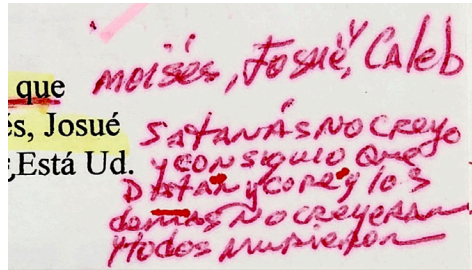 que
és, Josué
¿Está Ud.
moisés, Josué, y Caleb
SATANÁS NO CREYO
y CONSIGUIO QUE
DATAN y CORE y los
demas NO CREYERAN
y TODOS MURIERON